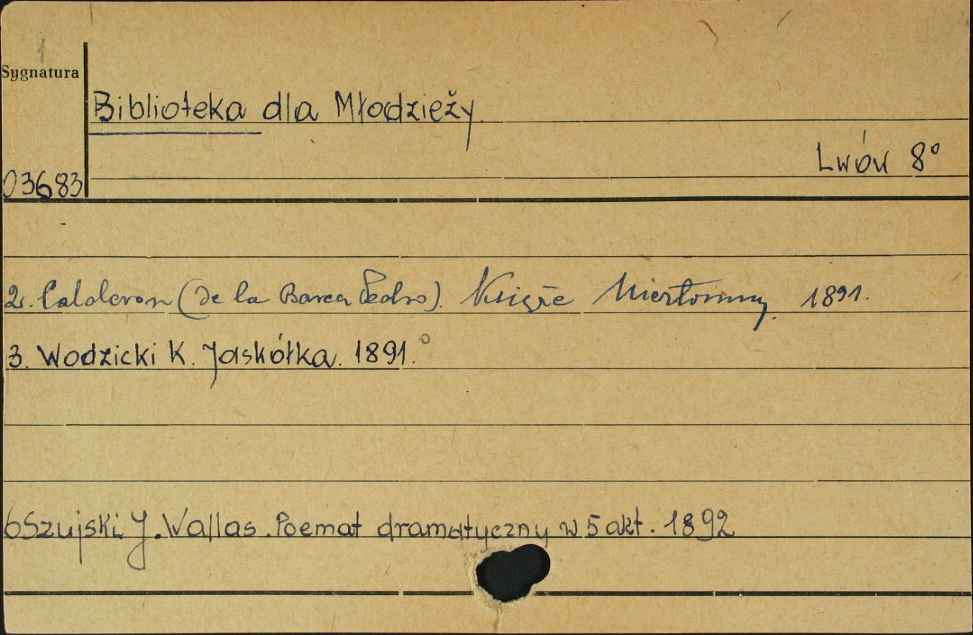 1
Sygnatura
Biblioteka dla Młodzieży
Lwów 8°
03683
2. Calderon (de la Barca Pedro). Książe Niezłomny. 1891.
3. Wodzicki K. Jaskółka. 1891.°
6 Szujski J. Wallas. Poemat dramatyczny w 5 akt. 1892